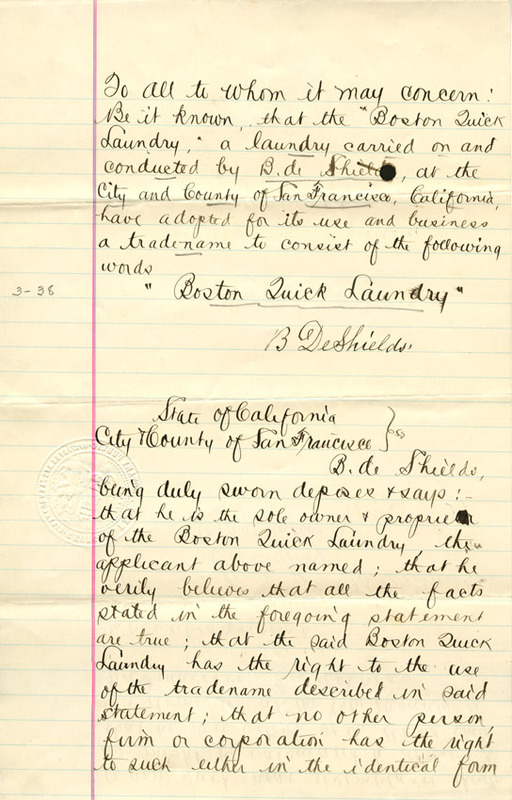 To all to whom it may concern:
Be it known, that the "Boston Quick
Laundry," a laundry carried on and
conducted by B. de Shields, at the
City and County of San Francisco, California,
have adopted for its use and business
a tradename to consist of the following
words
3-38
" Boston Quick Laundry "
B DeShields.
State of California
City & County of San Francisco } ss
B. de Shields,
being duly sworn deposes & says:-
that he is the sole owner & proprietor
of the Boston Quick Laundry, the
applicant above named; that he
verily believes that all the facts
stated in the foregoing statement
are true; that the said Boston Quick
Laundry has the right to the use
of the tradename described in said
statement; that no other person,
firm or corporation has the right
to such either in the identical form